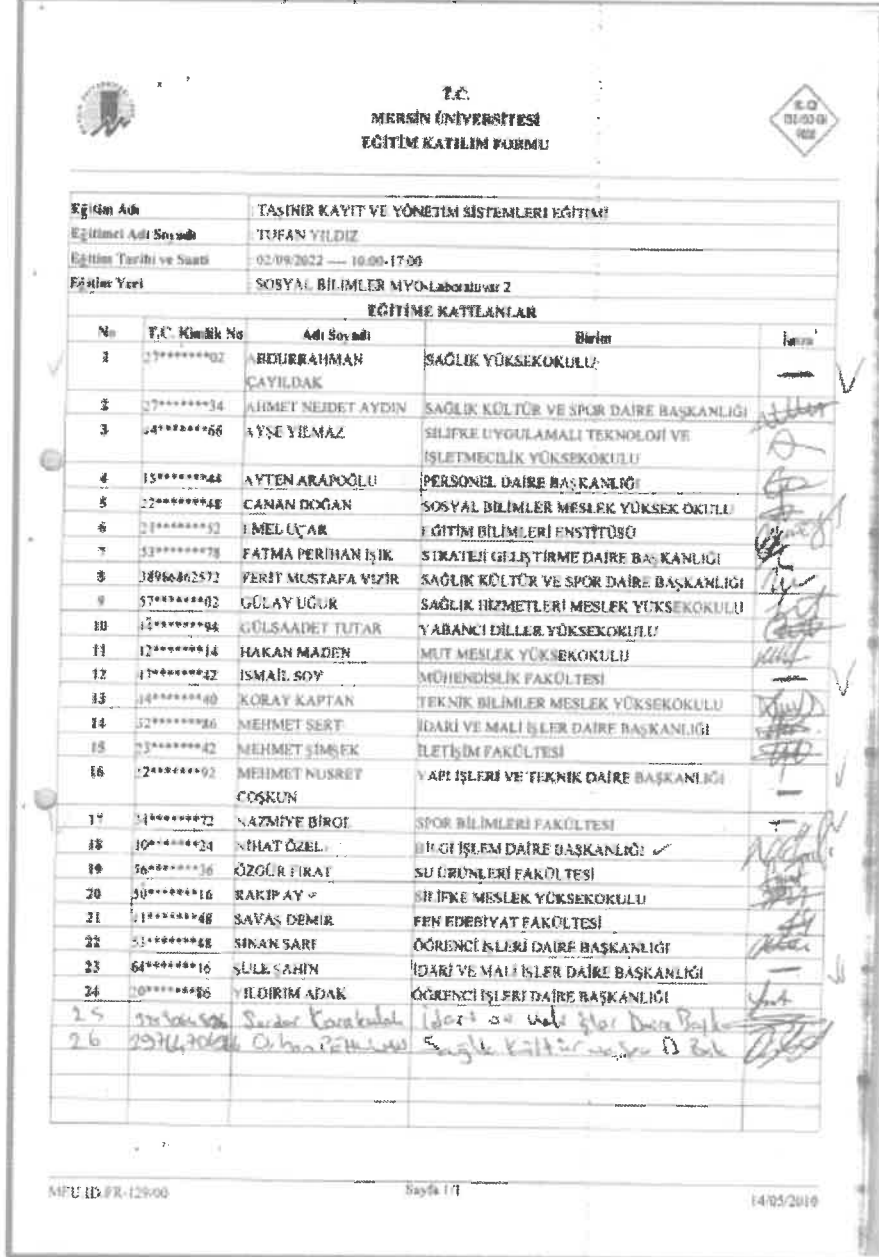 T.C.
MERSİN ÜNİVERSİTESİ
EĞİTİM KATILIM FORMU
Eğitim Adı : TAŞINIR KAYIT VE YÖNETİM SİSTEMLERİ EĞİTİMİ
Eğitimci Adı Soyadı : TUFAN YILDIZ
Eğitim Tarihi ve Saati : 02/09/2022 --- 10:00-17:00
Eğitim Yeri : SOSYAL BİLİMLER MYO-Laboratuvar 2
EĞİTİME KATILANLAR
No T.C. Kimlik No Adı Soyadı Birim İmza
1 27*******02 ABDURRAHMAN SAĞLIK YÜKSEKOKULU
ÇAYILDAK
2 27*******34 AHMET NEJDET AYDIN SAĞLIK KÜLTÜR VE SPOR DAİRE BAŞKANLIĞI
3 *******66 AYŞE YILMAZ SİLİFKE UYGULAMALI TEKNOLOJİ VE
İŞLETMECİLİK YÜKSEKOKULU
4 15*******44 AYTEN ARAPOĞLU PERSONEL DAİRE BAŞKANLIĞI
5 22*******48 CANAN DOĞAN SOSYAL BİLİMLER MESLEK YÜKSEK OKULU
6 *******52 EMEL UÇAR EĞİTİM BİLİMLERİ ENSTİTÜSÜ
7 53*******78 FATMA PERİHAN IŞIK STRATEJİ GELİŞTİRME DAİRE BAŞKANLIĞI
8 FERİT MUSTAFA VIZIR SAĞLIK KÜLTÜR VE SPOR DAİRE BAŞKANLIĞI
9 57*******02 GÜLAY UĞUR SAĞLIK HİZMETLERİ MESLEK YÜKSEKOKULU
10 14*******94 GÜLSAADET TUTAR YABANCI DİLLER YÜKSEKOKULU
11 12*******14 HAKAN MADEN MUT MESLEK YÜKSEKOKULU
12 *******42 İSMAİL SOY MÜHENDİSLİK FAKÜLTESİ
13 *******40 KORAY KAPTAN TEKNİK BİLİMLER MESLEK YÜKSEKOKULU
14 *******86 MEHMET SERT İDARİ VE MALİ İŞLER DAİRE BAŞKANLIĞI
15 *******42 MEHMET ŞİMŞEK İLETİŞİM FAKÜLTESİ
16 *******92 MEHMET NUSRET YAPI İŞLERİ VE TEKNİK DAİRE BAŞKANLIĞI
COŞKUN
17 *******72 NAZMİYE BİROL SPOR BİLİMLERİ FAKÜLTESİ
18 10*******24 NİHAT ÖZEL BİLGİ İŞLEM DAİRE BAŞKANLIĞI
19 56*******36 ÖZGÜR FIRAT SU ÜRÜNLERİ FAKÜLTESİ
20 50*******16 RAKIP AY SİLİFKE MESLEK YÜKSEKOKULU
21 *******48 SAVAŞ DEMİR FEN EDEBİYAT FAKÜLTESİ
22 *******48 SINAN SARI ÖĞRENCİ İŞLERİ DAİRE BAŞKANLIĞI
23 64*******16 ŞULE ŞAHİN İDARİ VE MALİ İŞLER DAİRE BAŞKANLIĞI
24 *******86 YILDIRIM ADAK ÖĞRENCİ İŞLERİ DAİRE BAŞKANLIĞI
25 Serdar Karakulak İdari ve Mali İşler Daire
26 Orhan Sağlık Kültür
MEU.İD.FR-129/00 Sayfa 1/1 14/05/2010